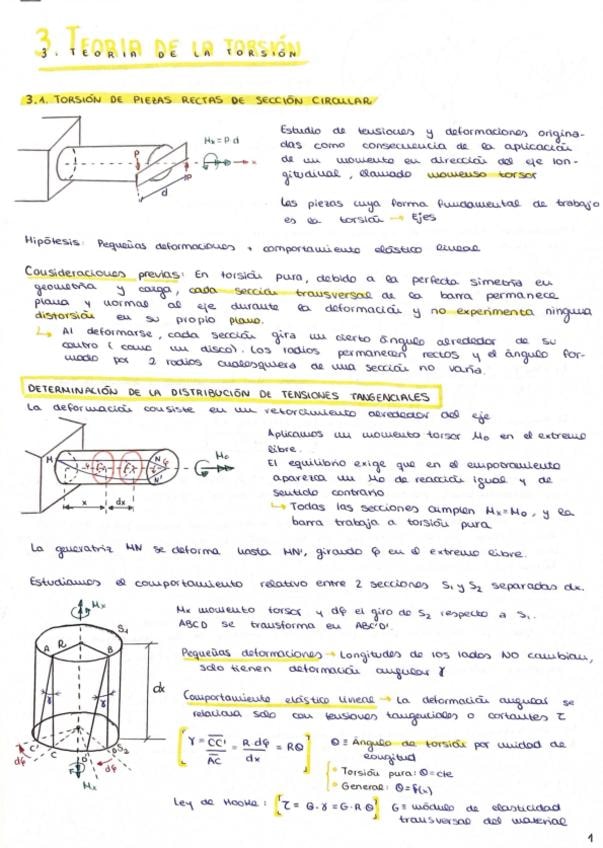 3. TEORIA DE LA TORSIÓN
3. TEORIA DE LA TORSIÓN
3.1. TORSIÓN DE PIEZAS RECTAS DE SECCIÓN CIRCULAR
Mx = P d
P
P
x
d
Estudio de tensiones y deformaciones origina-
das como consecuencia de la aplicación
de un momento en dirección del eje lon-
gitudinal, llamado momento torsor
Las piezas cuya forma fundamental de trabajo
es la torsión → Ejes
Hipótesis: Pequeñas deformaciones + comportamiento elástico lineal
Consideraciones previas: En torsión pura, debido a la perfecta simetría en
geometría y carga, cada sección transversal de la barra permanece
plana y normal al eje durante la deformación y no experimenta ninguna
distorsión en su propio plano.
↳ Al deformarse, cada sección gira un cierto ángulo alrededor de su
centro (como un disco). Los radios permanecen rectos y el ángulo for-
mado por 2 radios cualesquiera de una sección no varía.
DETERMINACIÓN DE LA DISTRIBUCIÓN DE TENSIONES TANGENCIALES
La deformación consiste en un retorcimiento alrededor del eje
M
N
N'
Mo
x
dx
Aplicamos un momento torsor Mo en el extremo
libre.
El equilibrio exige que en el empotramiento
aparezca un Mo de reacción igual y de
sentido contrario
↳ Todas las secciones cumplen Mx=Mo, y la
barra trabaja a torsión pura
La generatriz MN se deforma hasta MN', girando φ en el extremo libre.
Estudiamos el comportamiento relativo entre 2 secciones S1 y S2 separadas dx.
Mx
S1
A
R
B
γ
γ
dx
C'
C
D'
D
S2
dφ
dφ
Mx
Mx momento torsor y dφ el giro de S2 respecto a S1.
ABCD se transforma en ABC'D'.
Pequeñas deformaciones → Longitudes de los lados NO cambian,
solo tienen deformación angular γ
Comportamiento elástico lineal → La deformación angular se
relaciona solo con tensiones tangenciales o cortantes τ
γ = CC'/AC = R dφ/dx = Rθ
θ ≡ Ángulo de torsión por unidad de
longitud
• Torsión pura: θ=cte
• General: θ=f(x)
Ley de Hooke: τ = G·γ = G·R θ G ≡ módulo de elasticidad
transversal del material
1